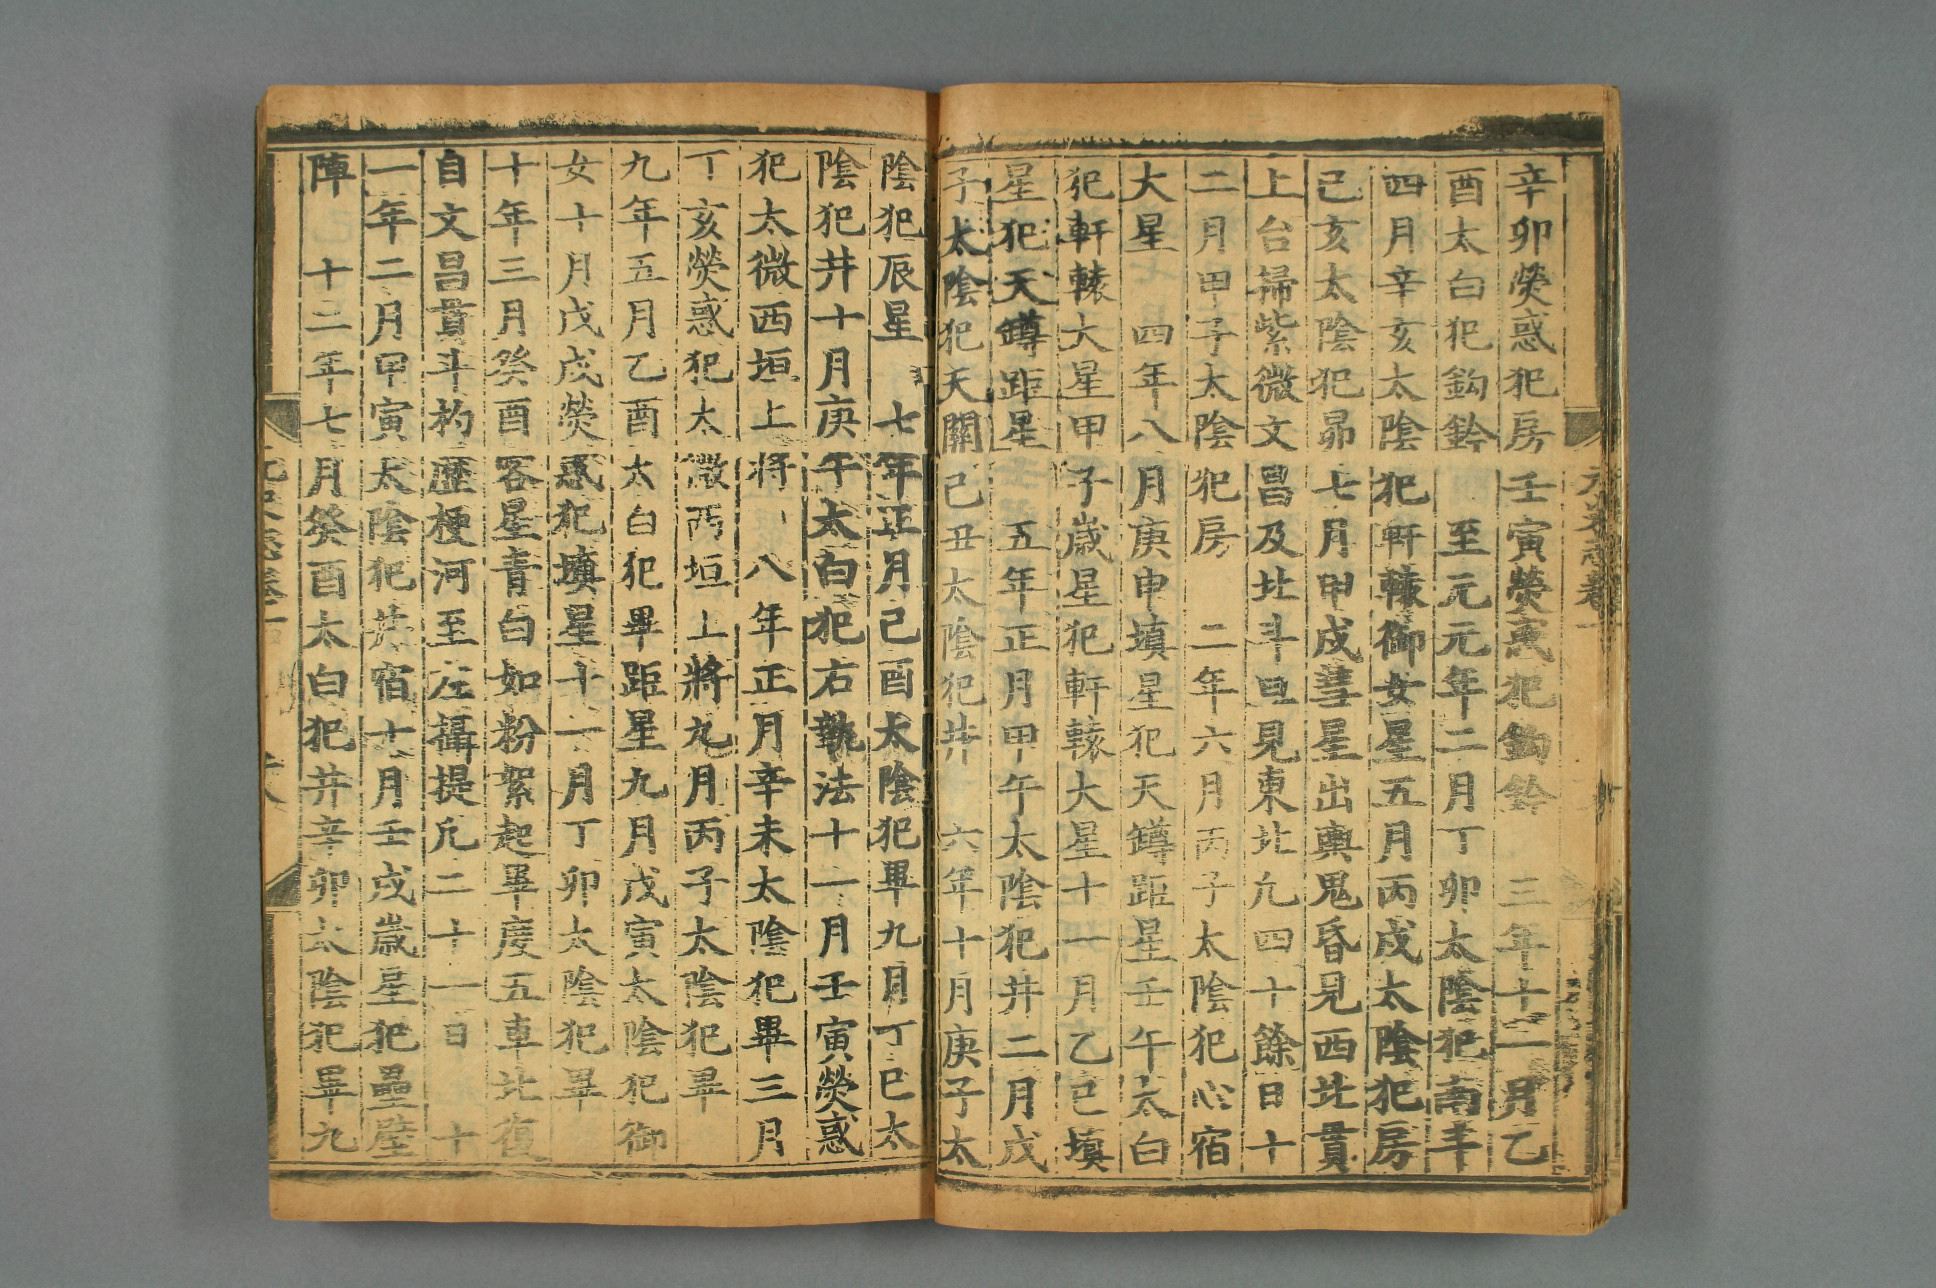 辛卯熒惑犯房壬寅熒惑犯鈎鈐　三年十一月乙
酉太白犯鈎鈐　至元元年二月丁卯太陰犯南斗
四月辛亥太陰犯軒轅御女星五月丙戌太陰犯房
己亥太陰犯昴七月甲戌彗星出輿鬼昏見西北貫
上台掃紫微文昌及北斗旦見東北凢四十餘日十
二月甲子太陰犯房　二年六月丙子太陰犯心宿
大星　四年八月庚申塡星犯天罇距星壬午太白
犯軒轅大星甲子歲星犯軒轅大星十一月乙巳塡
星犯天罇距星　五年正月甲午太陰犯井二月戊
子太陰犯天關己丑太陰犯井　六年十月庚子太
陰犯辰星　七年正月己酉太陰犯畢九月丁巳太
陰犯井十月庚午太白犯右執法十一月壬寅熒惑
犯太微西垣上將　八年正月辛未太陰犯畢三月
丁亥熒惑犯太微西垣上將九月丙子太陰犯畢
九年五月乙酉太白犯畢距星九月戊寅太陰犯御
女十月戊戌熒惑犯塡星十一月丁卯太陰犯畢
十年三月癸酉客星青白如粉絮起畢度五車北復
自文昌貫斗杓歷梗河至左攝提凢二十一日　十
一年二月甲寅太陰犯井宿十月壬戌歲星犯壘壁
陣　十二年七月癸酉太白犯井辛卯太陰犯畢九